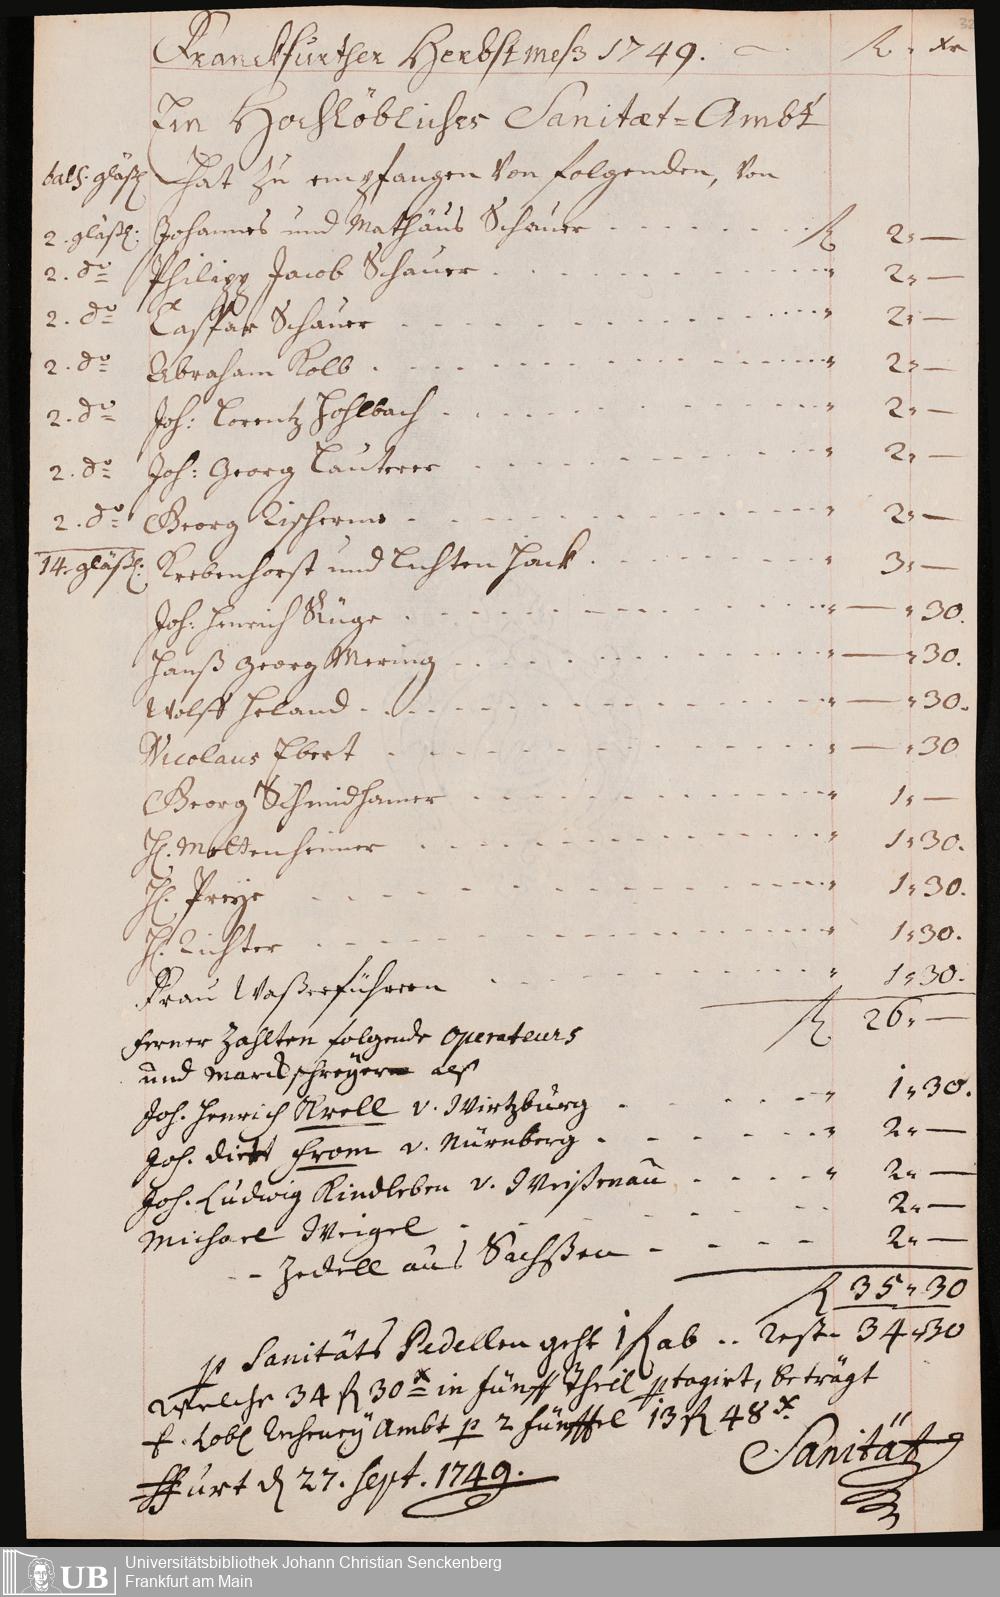 32
Franckfurther Herbstmeß 1749. — fl. Xr
Ein Hochlöbliches Sanitæt=Ambt
bals: gläßl Hat zu empfangen von folgenden, von
2. gläßl: Johannes und Mathäus Schauer . . . . . . . . fl 2„ —
2. do Philipp Jacob Schauer . . . . . . . . . „ 2„ —
2. do Caspar Schauer . . . . . . . . . . „ 2„ —
2. do Abraham Kolb . . . . . . . . . . „ 2„ —
2. do Joh: Lorentz Hohlbach . . . . . . . . . „ 2„ —
2. do Joh: Georg Lauterer . . . . . . . . . „ 2„ —
2. do Georg . . . . . . . . . „ 2„ —
14. gläßl: Krebenhorst und Lichten Hack . . . . . . „ 3„ —
Joh: Henrich Rüge . . . . . . . . . . „ — „ 30.
Hanß Georg Mering . . . . . . . . . . „ — „ 30.
Wolff Heland . . . . . . . . . . . „ — „ 30.
Nicolaus Ebert . . . . . . . . . . „ — „ 30
Georg Schmidhamer . . . . . . . . . „ 1„ —
H. Moltenheimer . . . . . . . . . . „ 1„ 30.
H. Preye . . . . . . . . . . . „ 1„ 30.
H. Richter . . . . . . . . . . . „ 1„ 30.
Frau Waßerführern . . . . . . . . „ 1„ 30.
fl 26„ —
ferner Zahlten folgende Operateurs
und Marckschreyern alß
Joh. Henrich Krell v. Wirtzburg . . . . . „ 1„ 30.
Joh. Diett From v. Nürnberg . . . . . „ 2„ —
Joh. Ludwig Kindleben v. Weißenau . . . . „ 2„ —
Michael Weigel . . . . . . . . 2„ —
-- Zedell aus Sachßen - - - - 2„ —
fl 35„ 30
p Sanitäts Pedellen geht 1 fl ab .. Rest. 34 „ 30
Welche 34 fl 30 x in fünff Theil ptagirt, beträgt
f. Löbl Recheney Ambt p 2 fünfftel 13 fl 48 x.
Sanität
ffurt d 27. Sept. 1749.
UB
Universitätsbibliothek Johann Christian Senckenberg
Frankfurt am Main